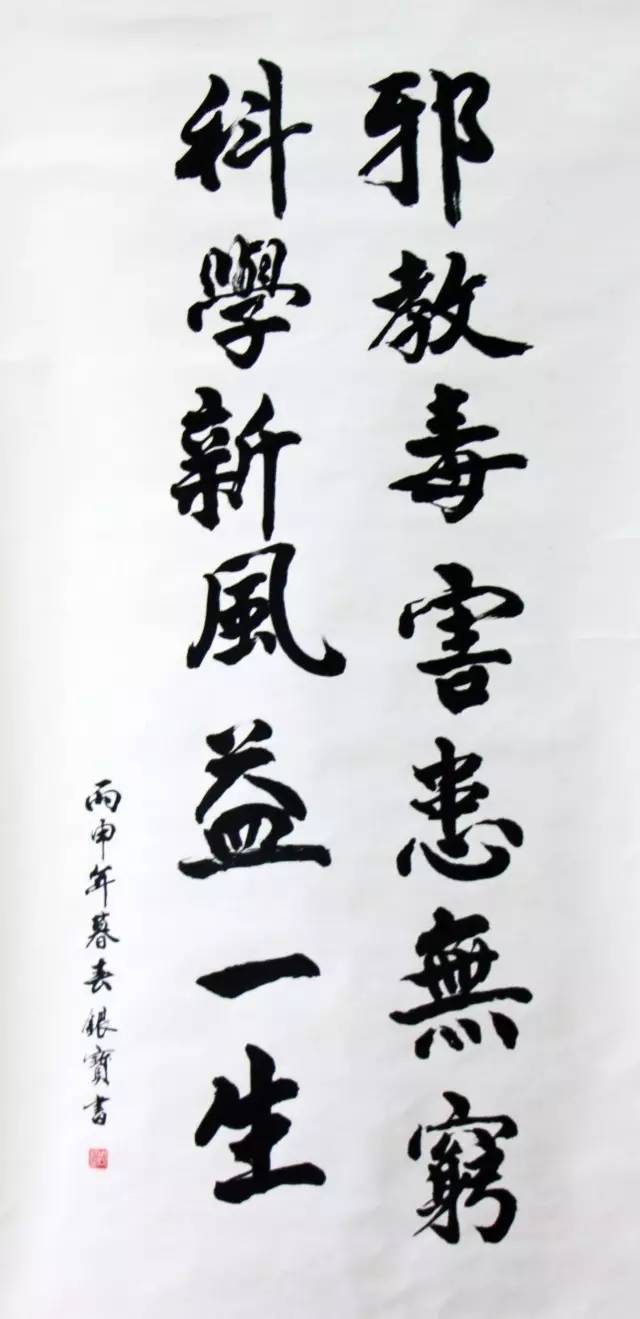 邪教毒害患無窮
科學新風益一生
丙申年暮春銀寶書